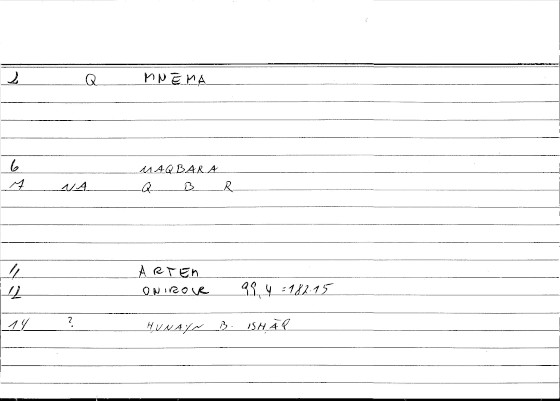 2 Q MNĒMA
6 MAQBARA
7 NA Q B R
11 ARTEM
12 ONIROCR 99,4 = 182.15
14 ? HUNAYN B. ISHĀQ